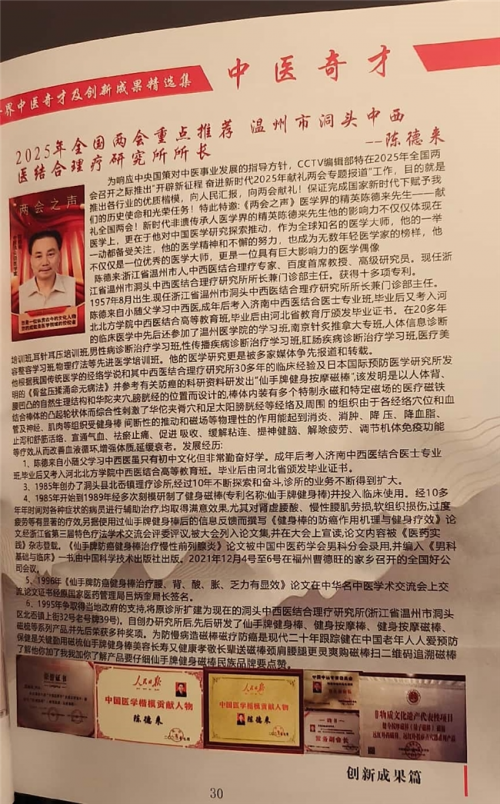 界中医奇才及创新成果精选集
中医奇才
2025年全国两会重点推荐 温州市洞头中西
医结合理疗研究所所长
--陈德来
为响应中央国策对中医事业发展的指导方针，CCTV编辑部特在2025年全国两
会召开之际推出“开辟新征程 奋进新时代2025年献礼两会专题报道”工作，目的就是
推出各行业的优质楷模，向人民汇报，向两会献礼！保证完成国家新时代下赋予我
们的历史使命和光荣任务！特此特邀:《两会之声》医学界的精英陈德来先生——献
礼全国两会！新时代非遗传承人医学界的精英陈德来先生他的影响力不仅仅体现在
医学上，更在于他对中国医学研究探索推动，作为全球知名的医学大师，他的一举
一动都备受关注，他的医学精神和不懈的努力，也成为无数年轻医学家的榜样，他
不仅仅是一位优秀的医学大师，更是一位具有巨大影响力的医学偶像
两会之声
陈德来:浙江省温州市人,中西医结合理疗专家、百度首席教授、高级研究员。现任浙
江省温州市洞头中西医结合理疗研究所所长兼门诊部主任。获得十多项专利。
1957年8月出生,现任浙江省温州市洞头中西医结合理疗研究所所长兼门诊部主任。
陈德来自小随父学习中西医,成年后考入济南中西医结合医士专业班,毕业后又考入河
北北方学院中西医结合高等教育班,毕业后由河北省教育厅颁发毕业证书。在20多年
的临床医学中先后还参加了温州医学院的学习班,南京针炙推拿大专班,人体信息诊断
培训班,耳针耳压培训班,男性病诊断治疗学习班,性传播疾病诊断治疗学习班,肛肠疾病诊断治疗学习班,医疗美
容整容学习班,物理疗法等先进医学培训班。他的医学研究更是被多家媒体争先报道和转载。
他根据我国传统医学的经络学说和其中西医结合理疗研究所30多年的临床经验及日本国际预防医学研究所发
明的《脊盆压揉消余无病法》并参考有关防癌的科研资料研发出“仙手牌健身按摩磁棒”,该发明是以人体背、
腰凹凸的自然生理结构和华佗夹穴膀胱经的位置而设计的,棒体内装有多个特制永磁和特定磁场的医疗磁铁
结合棒体的凸起轮状体而综合性刺激了华佗夹脊穴和足太阳膀胱经等经络及周围 的组织由于各经络穴位和血
管及神经、肌肉等组织受健身棒 间断性的推动和磁场等物理性的作用能起到消炎、消肿、降 压、降血脂、
止泻和舒筋活络、直通气血、祛瘀止痛、促进 吸收、缓解粘连、提神健脑、解除疲劳、调节机体免疫功能
等疗效,从而改善血液循环,增强体质,延缓衰老。发展经历:
1、陈德来自小随父学习中西医虽只有初中文化但非常勤奋好学。成年后考入济南中西医结合医士专业
班,毕业后又考入河北北方学院中西医结合高等教育班。毕业后由河北省颁发毕业证书。
3、1985年创办了洞头县北岙镇理疗诊所,经过10年不断探索和奋斗,诊所的业务不断得到扩大。
4、1985年开始到1989年经多次刻模研制了健身磁棒(专利名称:仙手牌健身棒)并投入临床使用。经10多
年年时间对各种症状的病员进行辅助治疗,均取得满意效果,尤其对肾虚腰酸、慢性腰肌劳损,软组织损伤,过度
疲劳等有显著的疗效,另据使用过仙手牌健身棒后的信息反馈而撰写《健身棒的防癌作用机理与健身疗效》论
文,经浙江省第三届特色疗法学术交流会评委评议,被大会列入论文集,并在大会上宣读,论文内容被《医药实
践》杂志登载。《仙手牌防癌健身棒治疗慢性前列腺炎》论文被中国中医药学会男科分会录用,并编入《男科
基础与临床》一书,由中国科学技术出版社出版。2021年12月4号至6号在福州曹德旺的家乡召开的全国好公
司会议。
5、1996年《仙手牌防癌健身棒治疗腰、背、酸、胀、乏力有显效》论文在中华名中医学术交流会上交
流,论文证书经原国家医药管理局吕炳奎局长签名。
6、1995年争取得当地政府的支持,将原诊所扩建为现在的洞头中西医结合理疗研究所(浙江省温州市洞头
区北岙镇上街32号老号牌39)。自创办研究所后,先后研发了仙手牌健身棒、健身按摩棒、健身按摩磁棒、
磁梳等系列产品,并先后荣获多种奖项。为防慢病造磁棒磁疗防癌是现代二十年跟踪健在中国老年人人爱预防
保健是关键勤用磁疏仙手牌健身棒美容长寿又健康孝敬长辈送磁棒颈肩腰腿更要爽购磁棒扫二维码追溯磁棒
了解他你加了我我加你了解产品要仔细仙手牌健身磁棒民族品牌要点赞。
人民日报
中国医学楷模贡献人物
陈德来
人民日报
中国医学楷模贡献人物
陈德来
非物质文化遗产代表性项目
创新成果篇
30